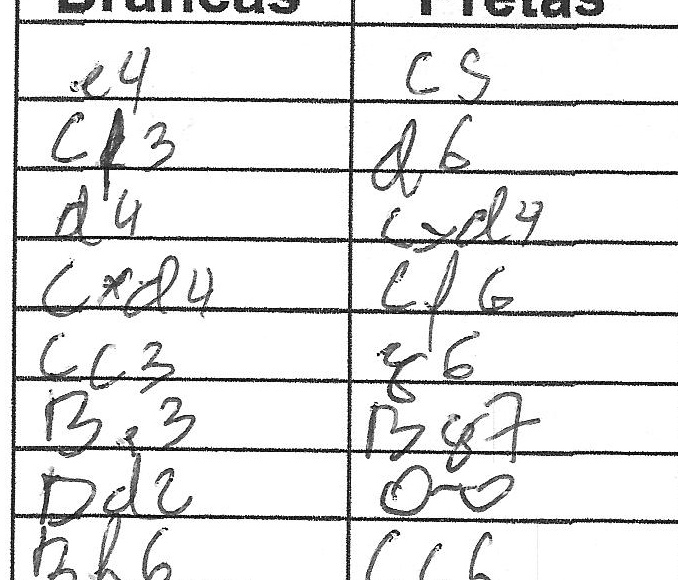 Brancas Pretas
e4 c5
Cf3 d6
d4 cxd4
Cxd4 Cf6
Cc3 g6
Be3 Bg7
Dd2 0-0
Bh6 Cc6